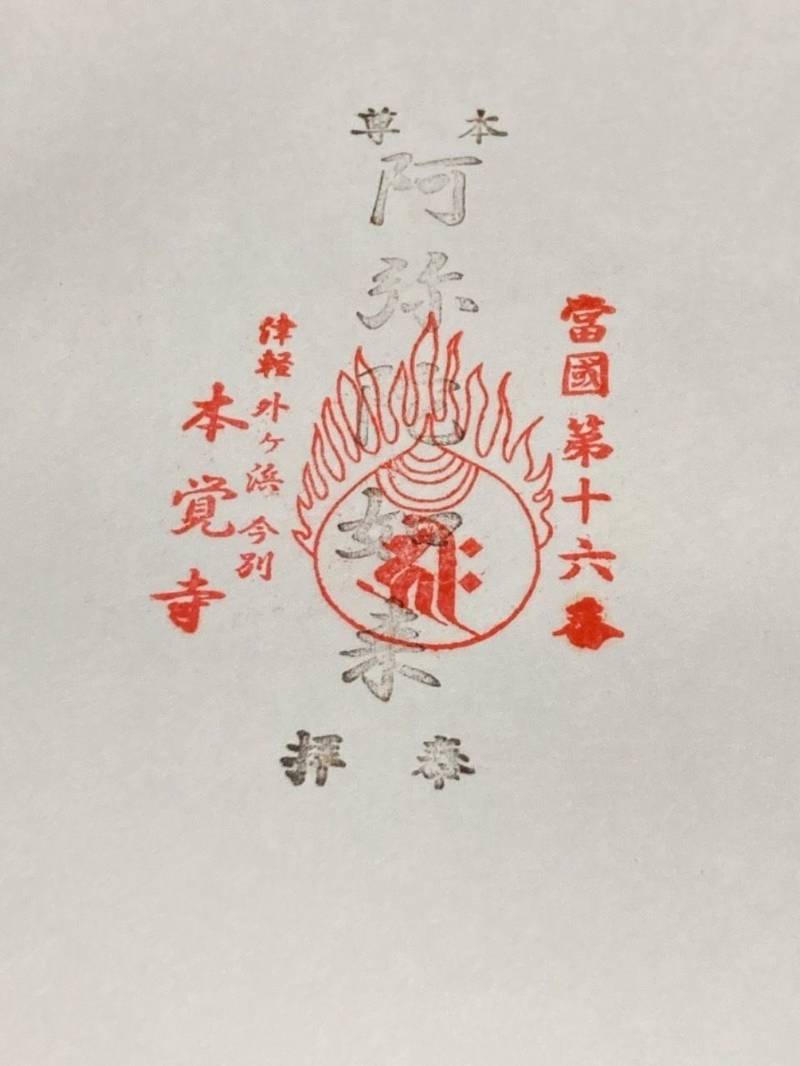 本尊
當國第十六番
阿弥陀如来
津軽外ヶ浜今別
本覚寺
奉拝